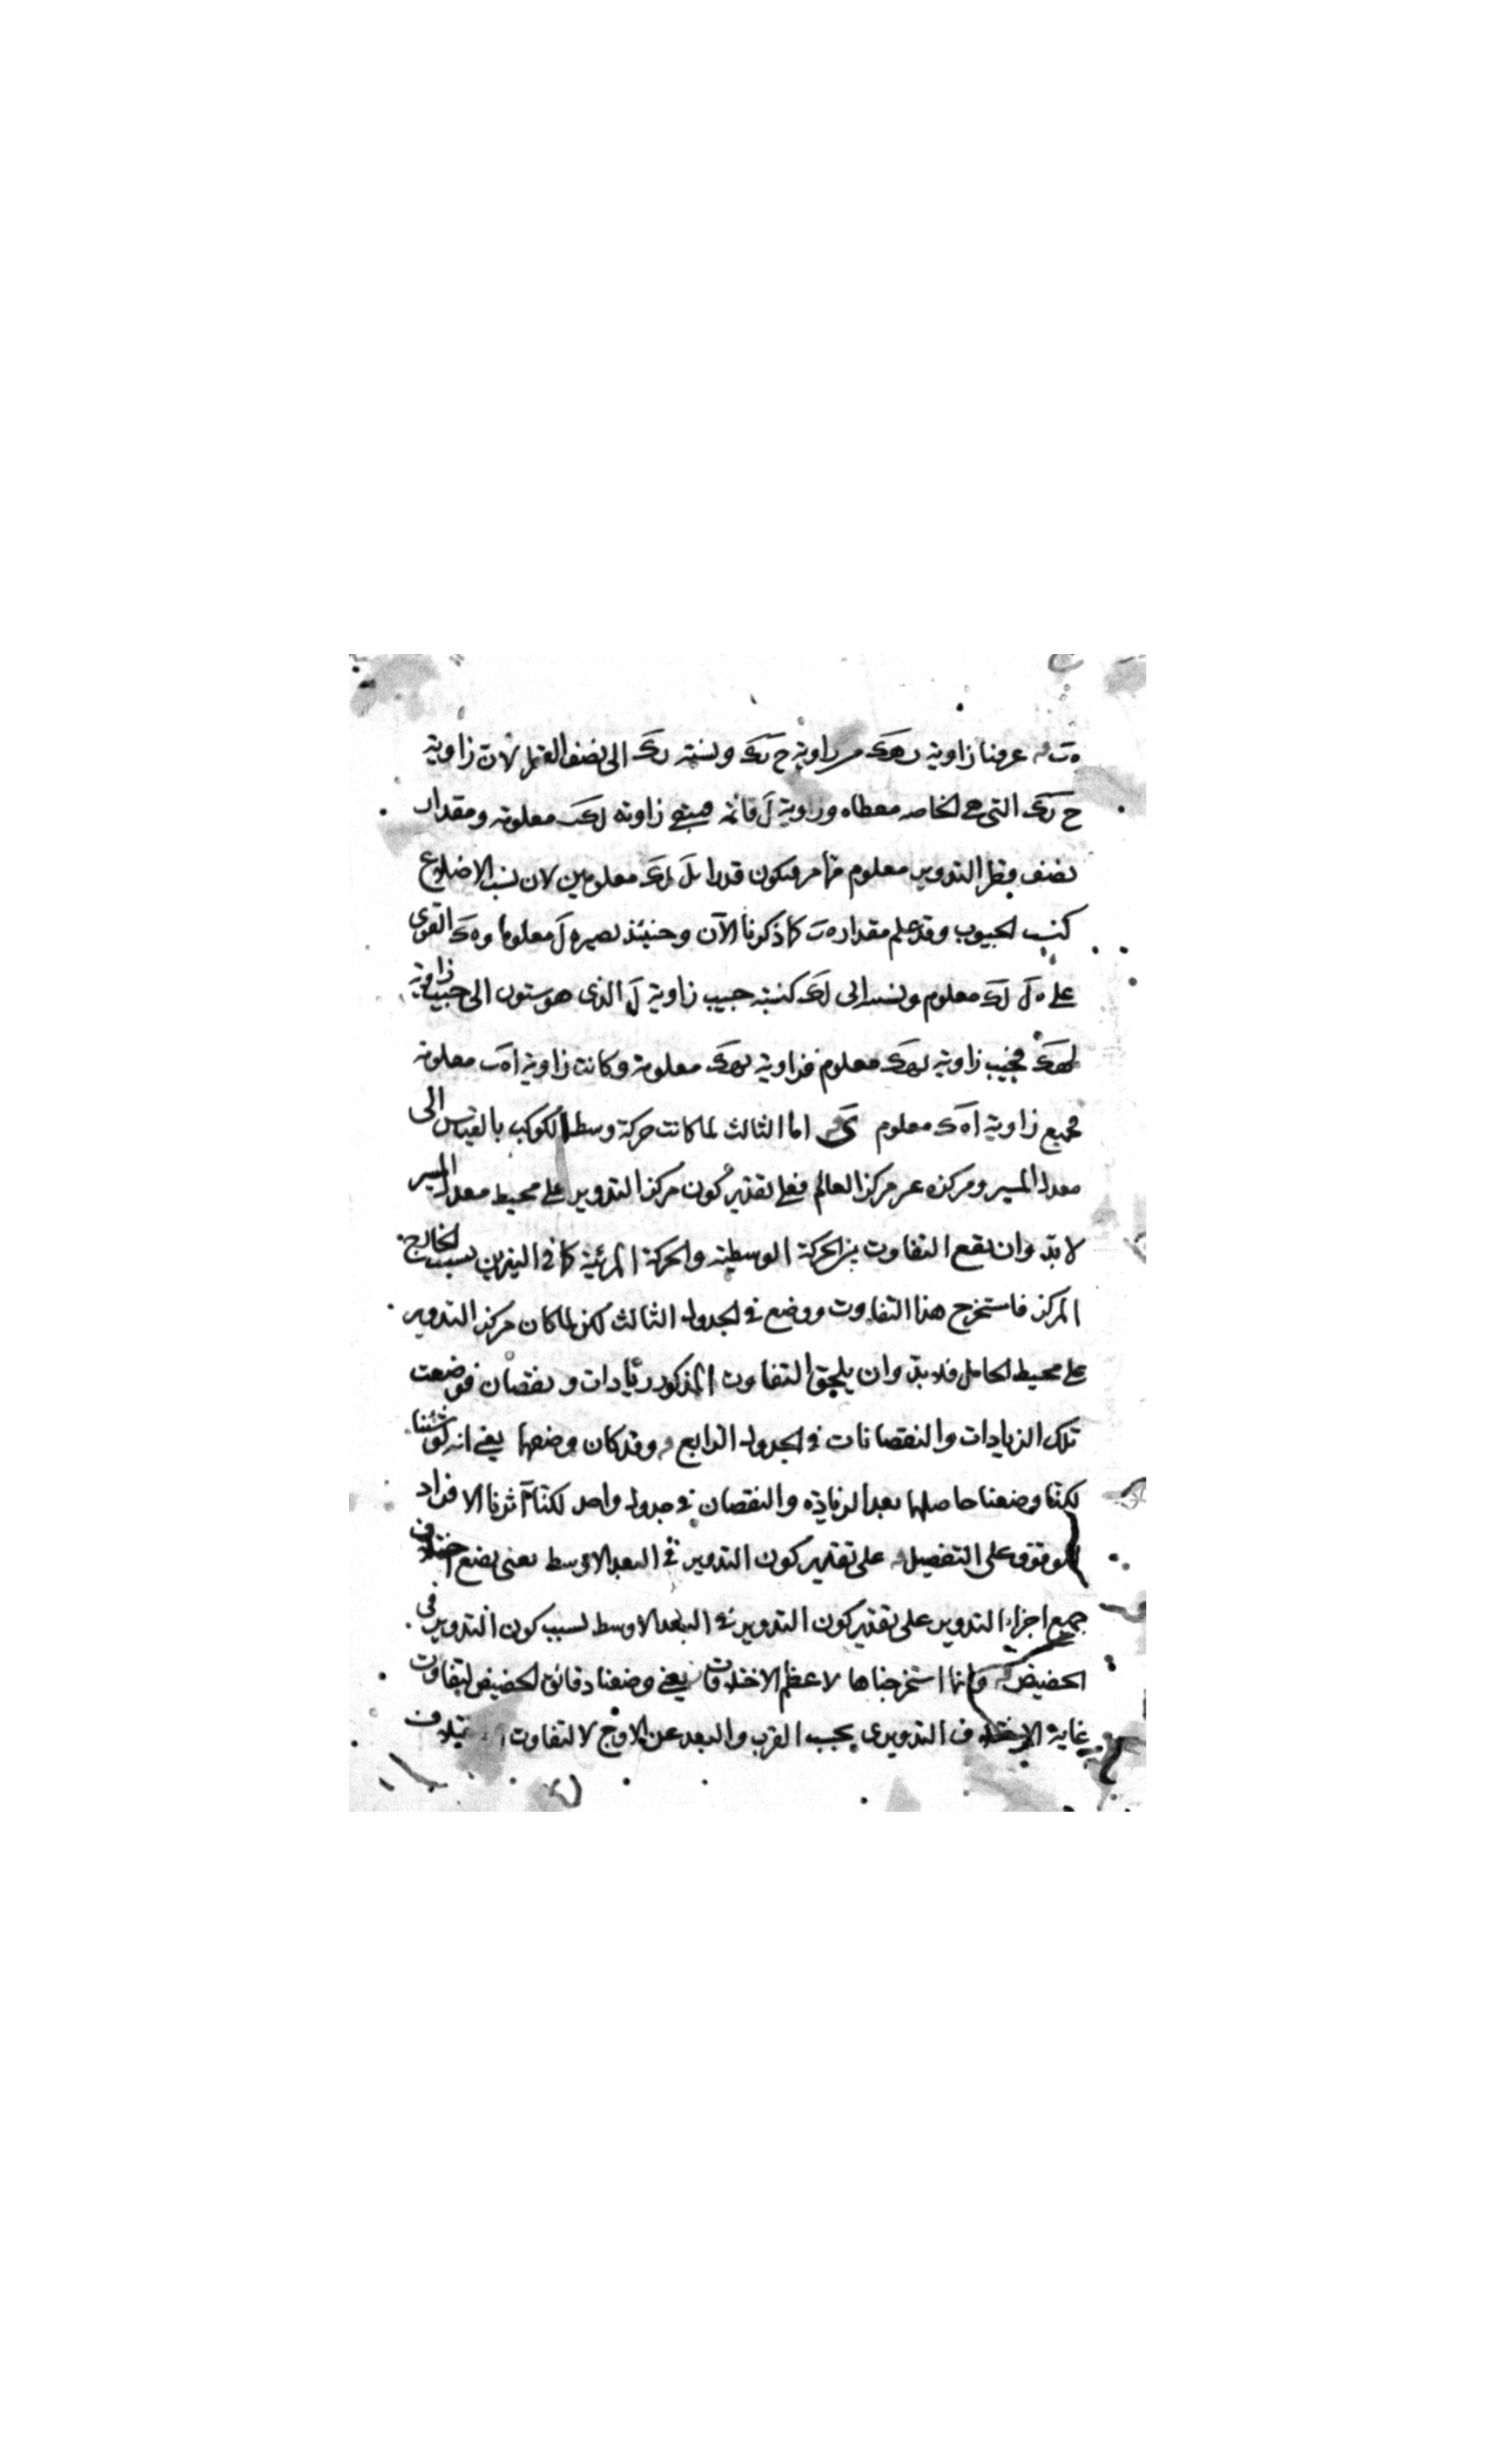 ه ب عرفنا زاوية ب ه ك من زاوية ح ب ك ونسبة ب ك الى نصف القطر لان زاوية
ح ب ك التى هى الخاصه معطاه وزاوية ل قائمة فيبقى زاوية ل ك ب معلومة ومقدار
نصف قطر التدوير معلوم فيكون قدرا ب ل ل ك معلومين لان نسب الاضلاع
كنسب الجيوب وقد علم مقدار ه ب كما ذكرنا الآن وحينئذ يصير ه ل معلوما و ه ك القوى
على ه ل ل ك معلوم ونسبته الى ل ك كنسبة جيب زاوية ل الذى هو ستون الى جيب زاوية
ل ه ك فجيب زاوية ب ه ك معلوم فزاوية ب ه ك معلومة وكانت زاوية ا ه ب معلومة
فجميع زاوية ا ه ك معلوم اما الثالث لما كانت حركة وسط الكوكب بالقياس الى
معدل المسير ومركزه غير مركز العالم فعلى تقدير كون مركز التدوير على محيط معدل المسير
لا بد وان يقع التفاوت بين الحركة الوسطية والحركة المرئية كما فى النيرين بسبب الخارج
المركز فاستخرج هذا التفاوت ووضع فى الجدول الثالث لكن لما كان مركز التدوير
على محيط الحامل فلا بد وان يلحق التفاوت المذكور زيادات ونقصان فوضعت
تلك الزيادات والنقصانات فى الجدول الرابع وقد كان وضعها يعنى انه لو شئنا
لكنا وضعنا حاصلها بعد الزيادة والنقصان فى جدول واحد لكنا آثرنا الافراد
للوقوف على التفصيل على تقدير كون التدوير فى البعد الاوسط يعنى يضع اختلاف
جميع اجزاء التدوير على تقدير كون التدوير فى البعد الاوسط بسبب كون التدوير فى
الحضيض وانما استخرجناها لاعظم الاختلافات يعنى وضعنا دقائق الحضيض لتفاوت
غاية الاختلاف التدويرى بحسب القرب والبعد عن الاوج لا لتفاوت